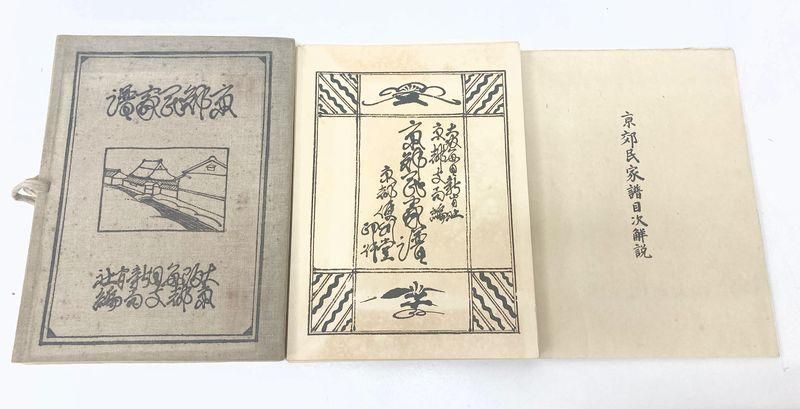 京郊民家譜
大阪毎日新聞社
京都支局編
大阪毎日新聞社
京都支局編
京郊民家譜
京都便利堂
印行
京郊民家譜目次解説